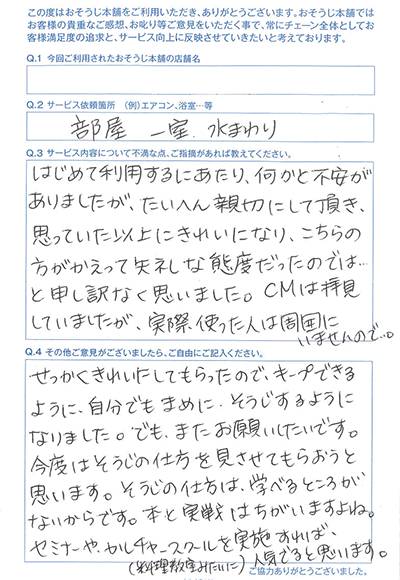 この度はおそうじ本舗をご利用いただき、ありがとうございます。おそうじ本舗では
お客様の貴重なご感想、お叱り等ご意見をいただく事で、常にチェーン全体としてお
客様満足度の追求と、サービス向上に反映させていきたいと考えております。
Q.1 今回ご利用されたおそうじ本舗の店舗名
Q.2 サービス依頼箇所 (例)エアコン、浴室…等
部屋 一室、水まわり
Q.3 サービス内容について不満な点、ご指摘があれば教えてください。
はじめて利用するにあたり、何かと不安が
ありましたが、たいへん親切にして頂き、
思っていた以上にきれいになり、こちらの
方がかえって失礼な態度だったのでは…
と申し訳なく思いました。CMは拝見
していましたが、実際使った人は周囲に
いませんので…。
Q.4 その他ご意見がございましたら、ご自由にご記入ください。
せっかくきれいにしてもらったので、キープできる
ように、自分でもまめに、そうじするように
なりました。でも、またお願いしたいです。
今度はそうじの仕方を見させてもらおうと
思います。そうじの仕方は、学べるところが
ないからです。本と実戦はちがいますよね。
セミナーや、カルチャースクールを実施すれば、
(料理教室みたいに)人気でると思います。
ご協力ありがとうございました。